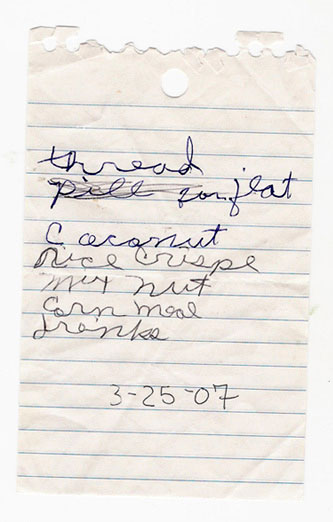 thread
Pill for flat
Coconut
Rice Crispe
mix nut
Corn meal
drinks
3-25-07